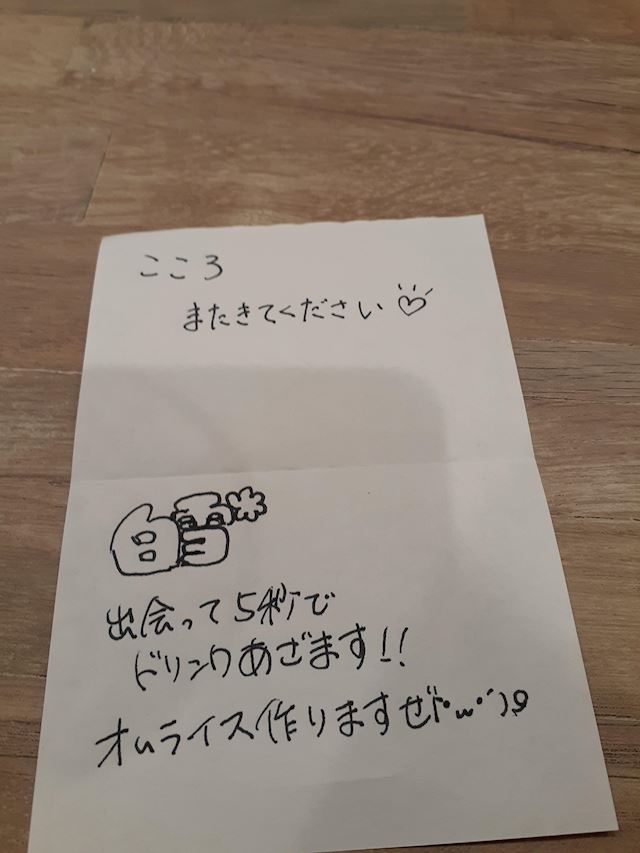 こころ
またきてください♡
白雪*
出会って5秒で
ドリンクあざます!!
オムライス作りますぜ(`･ω･´)و